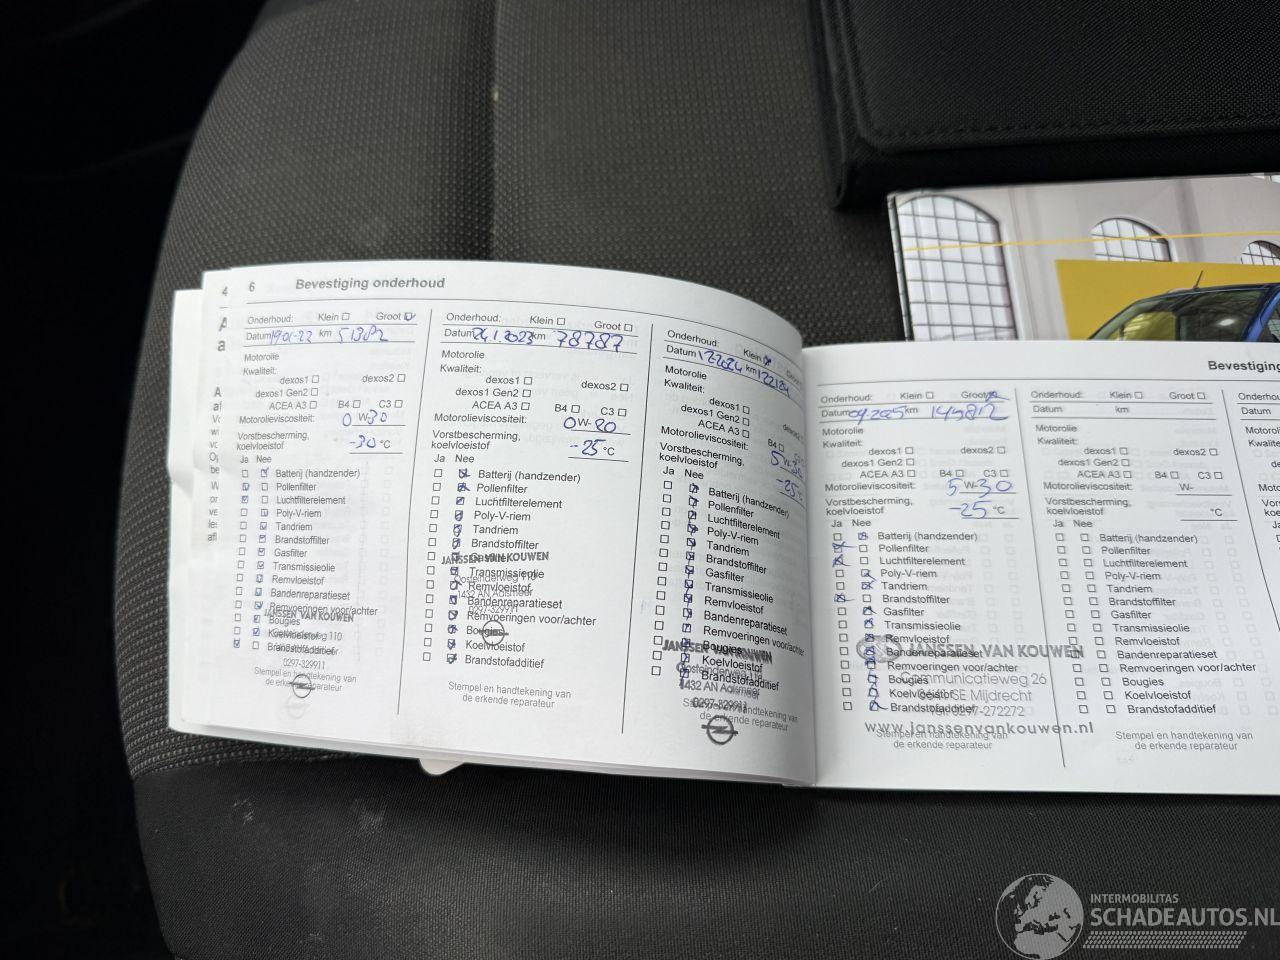 4
6 Bevestiging onderhoud
Onderhoud: Klein Groot
Datum 19-01-22 km 51302
Motorolie
Kwaliteit:
dexos1 dexos2
dexos1 Gen2
ACEA A3 B4 C3
Motorolieviscositeit: 0 W- 30
Vorstbescherming,
koelvloeistof -30 °C
Ja Nee
Batterij (handzender)
Pollenfilter
Luchtfilterelement
Poly-V-riem
Tandriem
Brandstoffilter
Gasfilter
Transmissieolie
Remvloeistof
Bandenreparatieset
Remvoeringen voor/achter
JANSSEN VAN KOUWEN
Bougies
Koelvloeistof
Brandstofadditief
0297-329911
Stempel en handtekening van
de erkende reparateur
Onderhoud: Klein Groot
Datum 24.1.2023 km 78787
Motorolie
Kwaliteit:
dexos1 dexos2
dexos1 Gen2
ACEA A3 B4 C3
Motorolieviscositeit: 0 W- 20
Vorstbescherming,
koelvloeistof -25 °C
Ja Nee
Batterij (handzender)
Pollenfilter
Luchtfilterelement
Poly-V-riem
Tandriem
Brandstoffilter
Gasfilter
JANSSEN VAN KOUWEN
Transmissieolie
Oosteinderweg 110
Remvloeistof
1432 AN Aalsmeer
Bandenreparatieset
0297-329911
Remvoeringen voor/achter
Bougies
Koelvloeistof
Brandstofadditief
Stempel en handtekening van
de erkende reparateur
Onderhoud: Klein
Datum km
Motorolie
Kwaliteit:
dexos1
dexos1 Gen2
ACEA A3 B4
Motorolieviscositeit: 5 W- 30
Vorstbescherming,
koelvloeistof -25
Ja Nee
Batterij (handzender)
Pollenfilter
Luchtfilterelement
Poly-V-riem
Tandriem
Brandstoffilter
Gasfilter
Transmissieolie
Remvloeistof
Bandenreparatieset
Remvoeringen voor/achter
Bougies
JANSSEN VAN KOUWEN
Koelvloeistof
Oosteinderweg 110
Brandstofadditief
1432 AN Aalsmeer
0297-329911
Stempel en handtekening van
de erkende reparateur
Bevestiging
Onderhoud: Klein Groot
Datum km
Motorolie
Kwaliteit:
dexos1 dexos2
dexos1 Gen2
ACEA A3 B4 C3
Motorolieviscositeit: 5 W- 30
Vorstbescherming,
koelvloeistof -25 °C
Ja Nee
Batterij (handzender)
Pollenfilter
Luchtfilterelement
Poly-V-riem
Tandriem
Brandstoffilter
Gasfilter
Transmissieolie
Remvloeistof
JANSSEN VAN KOUWEN
Bandenreparatieset
Remvoeringen voor/achter
Communicatieweg 26
Bougies
Koelvloeistof
Mijdrecht
Brandstofadditief
0297-272272
www.janssenvankouwen.nl
Stempel en handtekening van
de erkende reparateur
Onderhoud: Klein Groot
Datum km
Motorolie
Kwaliteit:
dexos1 dexos2
dexos1 Gen2
ACEA A3 B4 C3
Motorolieviscositeit: W-
Vorstbescherming,
koelvloeistof °C
Ja Nee
Batterij (handzender)
Pollenfilter
Luchtfilterelement
Poly-V-riem
Tandriem
Brandstoffilter
Gasfilter
Transmissieolie
Remvloeistof
Bandenreparatieset
Remvoeringen voor/achter
Bougies
Koelvloeistof
Brandstofadditief
Stempel en handtekening van
de erkende reparateur
INTERMOBILITAS
SCHADEAUTOS.NL